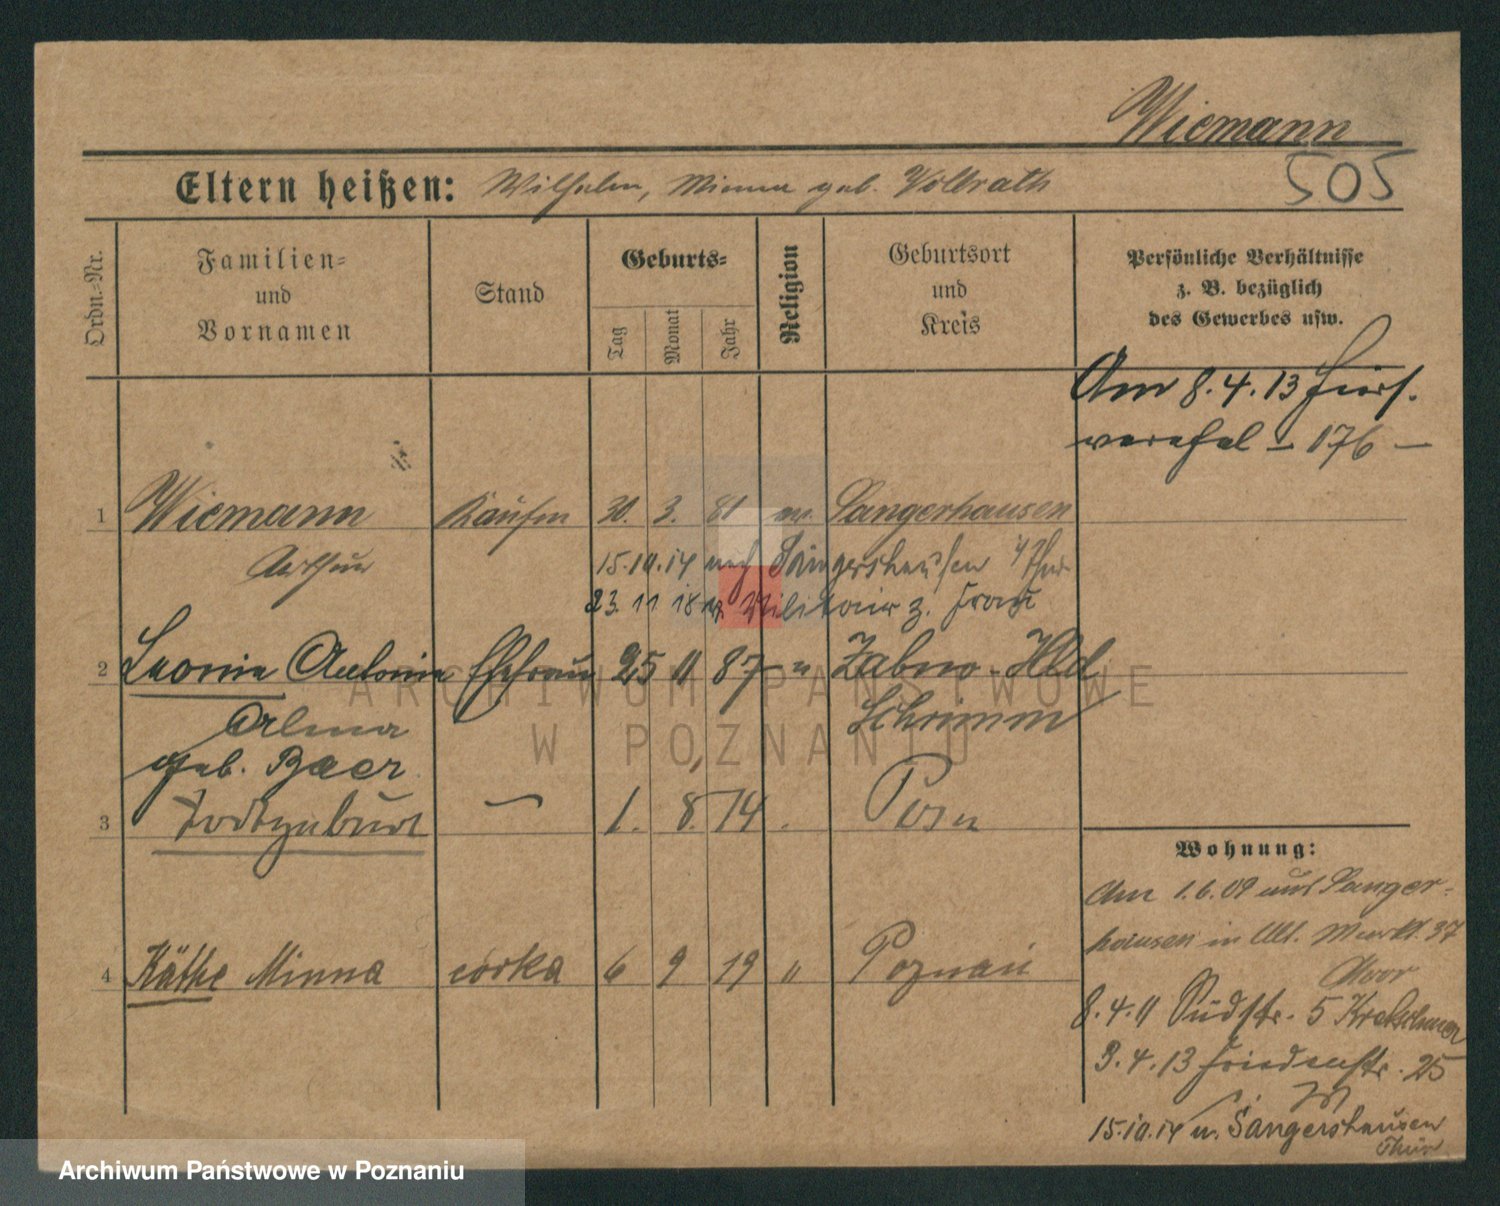 Wiemann
505
Eltern heißen: Wilhelm, Minna geb. Vollrath
Ordn.-Nr.
Familien-
und
Vornamen
Stand
Geburts-
Tag
Monat
Jahr
Religion
Geburtsort
und
Kreis
Persönliche Verhältnisse
z. B. bezüglich
des Gewerbes usw.
Am 8.4.13
176
1 Wiemann Kaufm 30. 3. 81 ev. Sangerhausen
Arthur 15.10.14 nach Sangershausen Thür
23. 11 18 v. Militair z. Frau
2 Leonie Antonie Ehefrau 25 11 87 " Zabno-Hld
Alma
Schrimm
geb. Baer
3 Todtgeburt — 1. 8. 14 Posen
4 Käthe Minna córka 6 9 19 " Poznań
Wohnung:
Am 1.6.09 aus Sanger-
hausen in Alt. Markt 37
8.4.11 Südstr. 5 Kretschmer
3.4.13 Friedenstr. 25
15.10.14 n. Sangershausen
Thür
ARCHIWUM PAŃSTWOWE
W POZNANIU
Archiwum Państwowe w Poznaniu